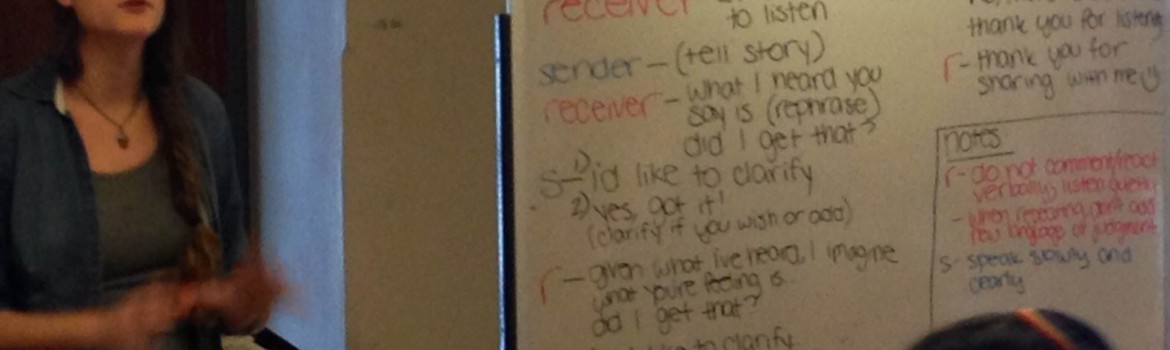 receiver - 
to listen
sender - (tell story)
receiver - what I heard you
say is (rephrase)
did I get that?
s - 1) i'd like to clarify
2) yes, got it!
(clarify if you wish or add)
r - given what i've heard, I imagine
what you're feeling is..
did I get that?
to clarify
thank you for listening
r - thank you for
sharing with me
notes
r - do not comment/react
verbally, listen quietly
- when repeating, don't add
new language or judgment
s - speak slowly and
clearly